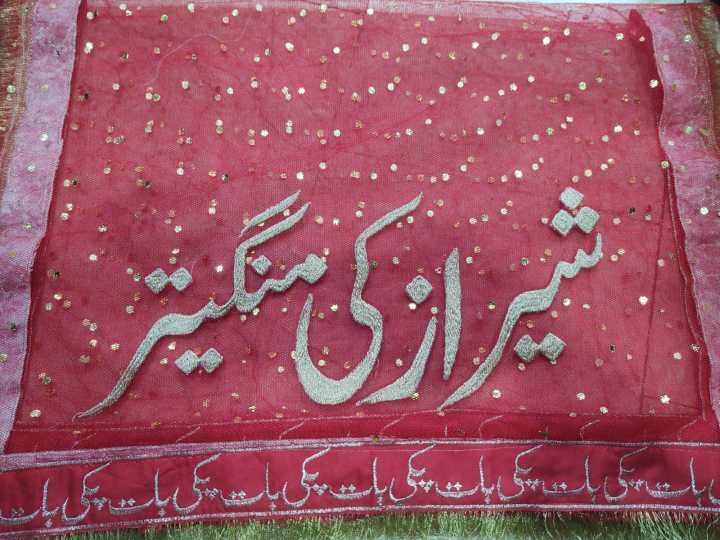 شیراز کی منگیتر
بات پکی بات پکی بات پکی بات پکی بات پکی بات پکی بات